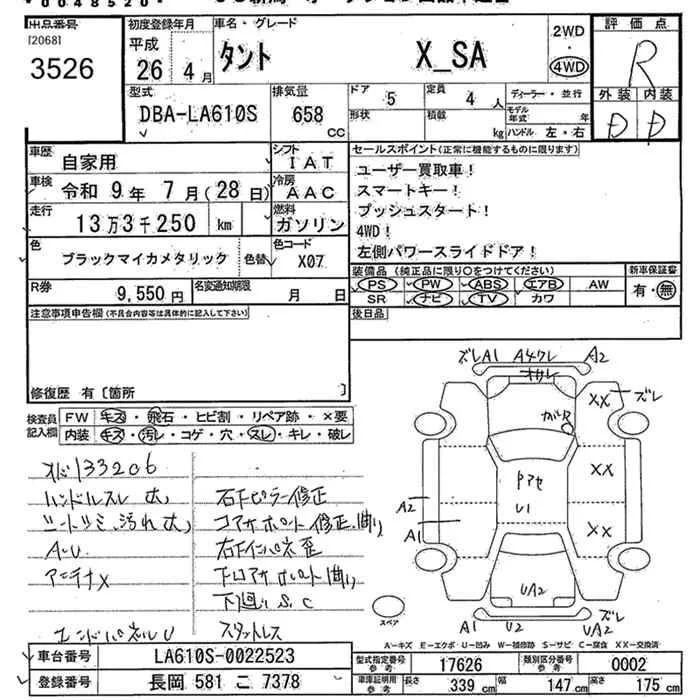 *0048520*
出品番号
[2068]
3526
初度登録年月
平成
26年 4月
車名・グレード
タント X_SA
2WD
・
4WD
評価点
R
外装 内装
D D
型式
DBA-LA610S
排気量
658
CC
ドア
5
定員
4 人
形状
積載
kg
ディーラー・並行
モデル年式 年
ハンドル 左・右
車歴
自家用
シフト
IAT
車検
令和 9年 7月(28日)
冷房
AAC
走行
13万3千250 km
燃料
ガソリン
色
ブラックマイカメタリック
色替
色コード
X07
R券
9,550円
名変通知期限
月 日
セールスポイント(正常に機能するものに限ります)
ユーザー買取車!
スマートキー!
プッシュスタート!
4WD!
左側パワースライドドア!
装備品(純正品に限り○をつけてください)
PS PW ABS エアB AW
SR ナビ TV カワ
新車保証書
有・無
後日品
注意事項申告欄(不具合内容等は具体的に記入して下さい)
修復歴 有〔箇所 〕
検査員記入欄
FW キズ・飛石・ヒビ割・リペア跡・×要
内装 キズ・汚レ・コゲ・穴・スレ・キレ・破レ
133206
ハンドルスレ大
シートシミ、汚れ大
A・U
アンテナX
エンドパネルU
右下ピラー修正
コアサポート修正、曲り
右下インパネ歪
下コアサポート曲り
下廻りS.C
スタットレス
ズレ A1 A4ワレ A2
ズレ
XX
ガバR
XX
XX
U1
A2
A1
UA2
スペア
A1 U2 UA2 ズレ
A−キズ E−エクボ U−凹み W−補修跡 S−サビ C−腐食 XX−交換済
車台番号
LA610S-0022523
登録番号
長岡 581 こ 7378
型式指定番号 参考
17626
類別区分番号 参考
0002
車庫証明用 参考
長さ 339 cm
幅 147 cm
高さ 175 cm